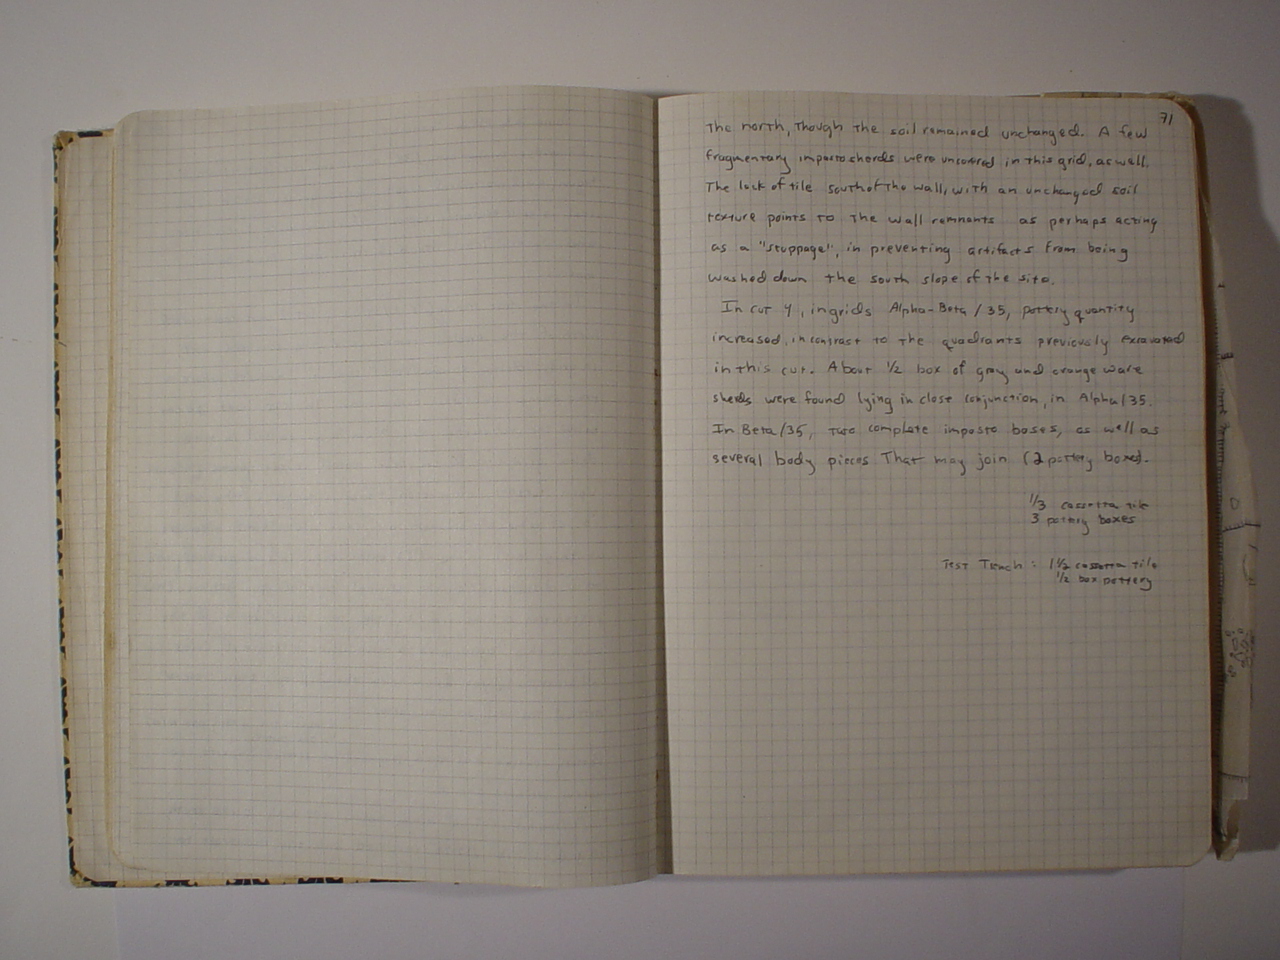 71
the north, though the soil remained unchanged. A few
fragmentary impasto sherds were uncovered in this grid, as well.
The lack of tile south of the wall, with an unchanged soil
texture points to the wall remnants as perhaps acting
as a "stoppage", in preventing artifacts from being
washed down the south slope of the site.
In cut 4, in grids Alpha-Beta/35, pottery quantity
increased, in contrast to the quadrants previously excavated
in this cut. About 1/2 box of gray and orange ware
sherds were found lying in close conjunction, in Alpha/35.
In Beta/35, two complete impasto bases, as well as
several body pieces that may join (2 pottery boxes).
1/3 cassetta tile
3 pottery boxes
Test Trench: 1 1/2 cassetta tile
1/2 box pottery